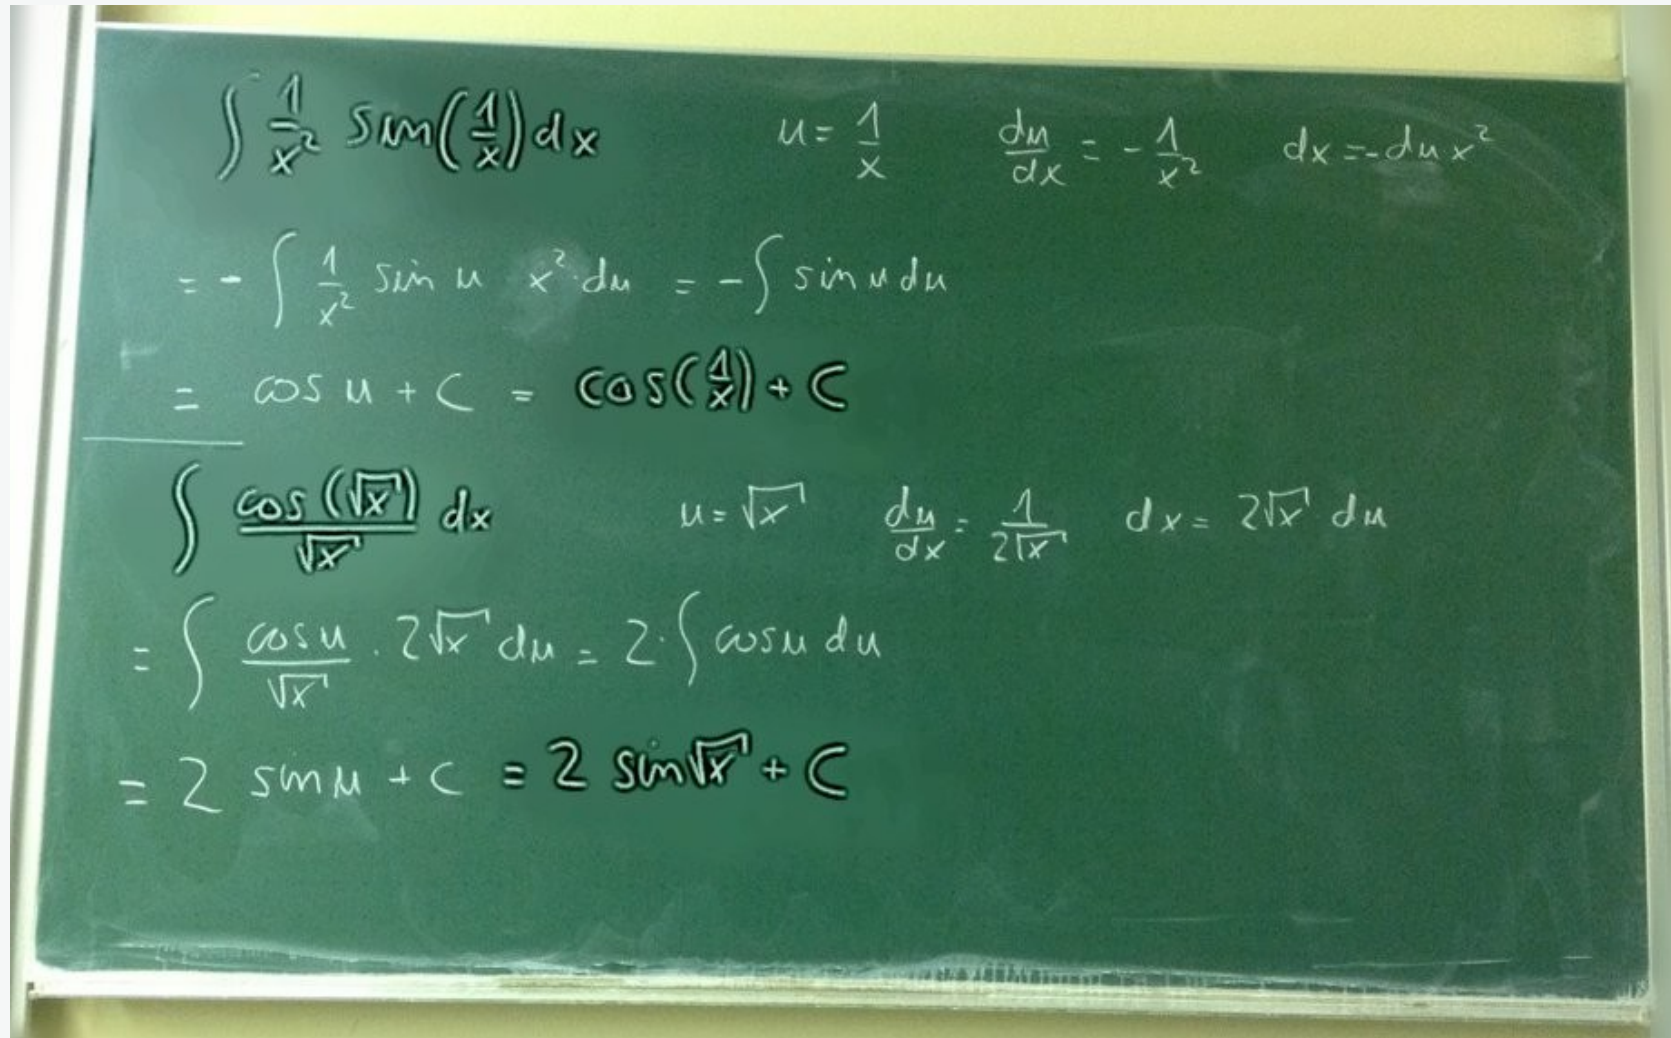 ∫ 1/x² sin(1/x) dx    u = 1/x    du/dx = - 1/x²    dx = -du x²
= - ∫ 1/x² sin u x² · du = - ∫ sin u du
= cos u + C = cos(1/x) + C
∫ cos(√x)/√x dx    u = √x    du/dx = 1/(2√x)    dx = 2√x du
= ∫ cos u/√x · 2√x du = 2 · ∫ cos u du
= 2 sin u + C = 2 sin√x + C